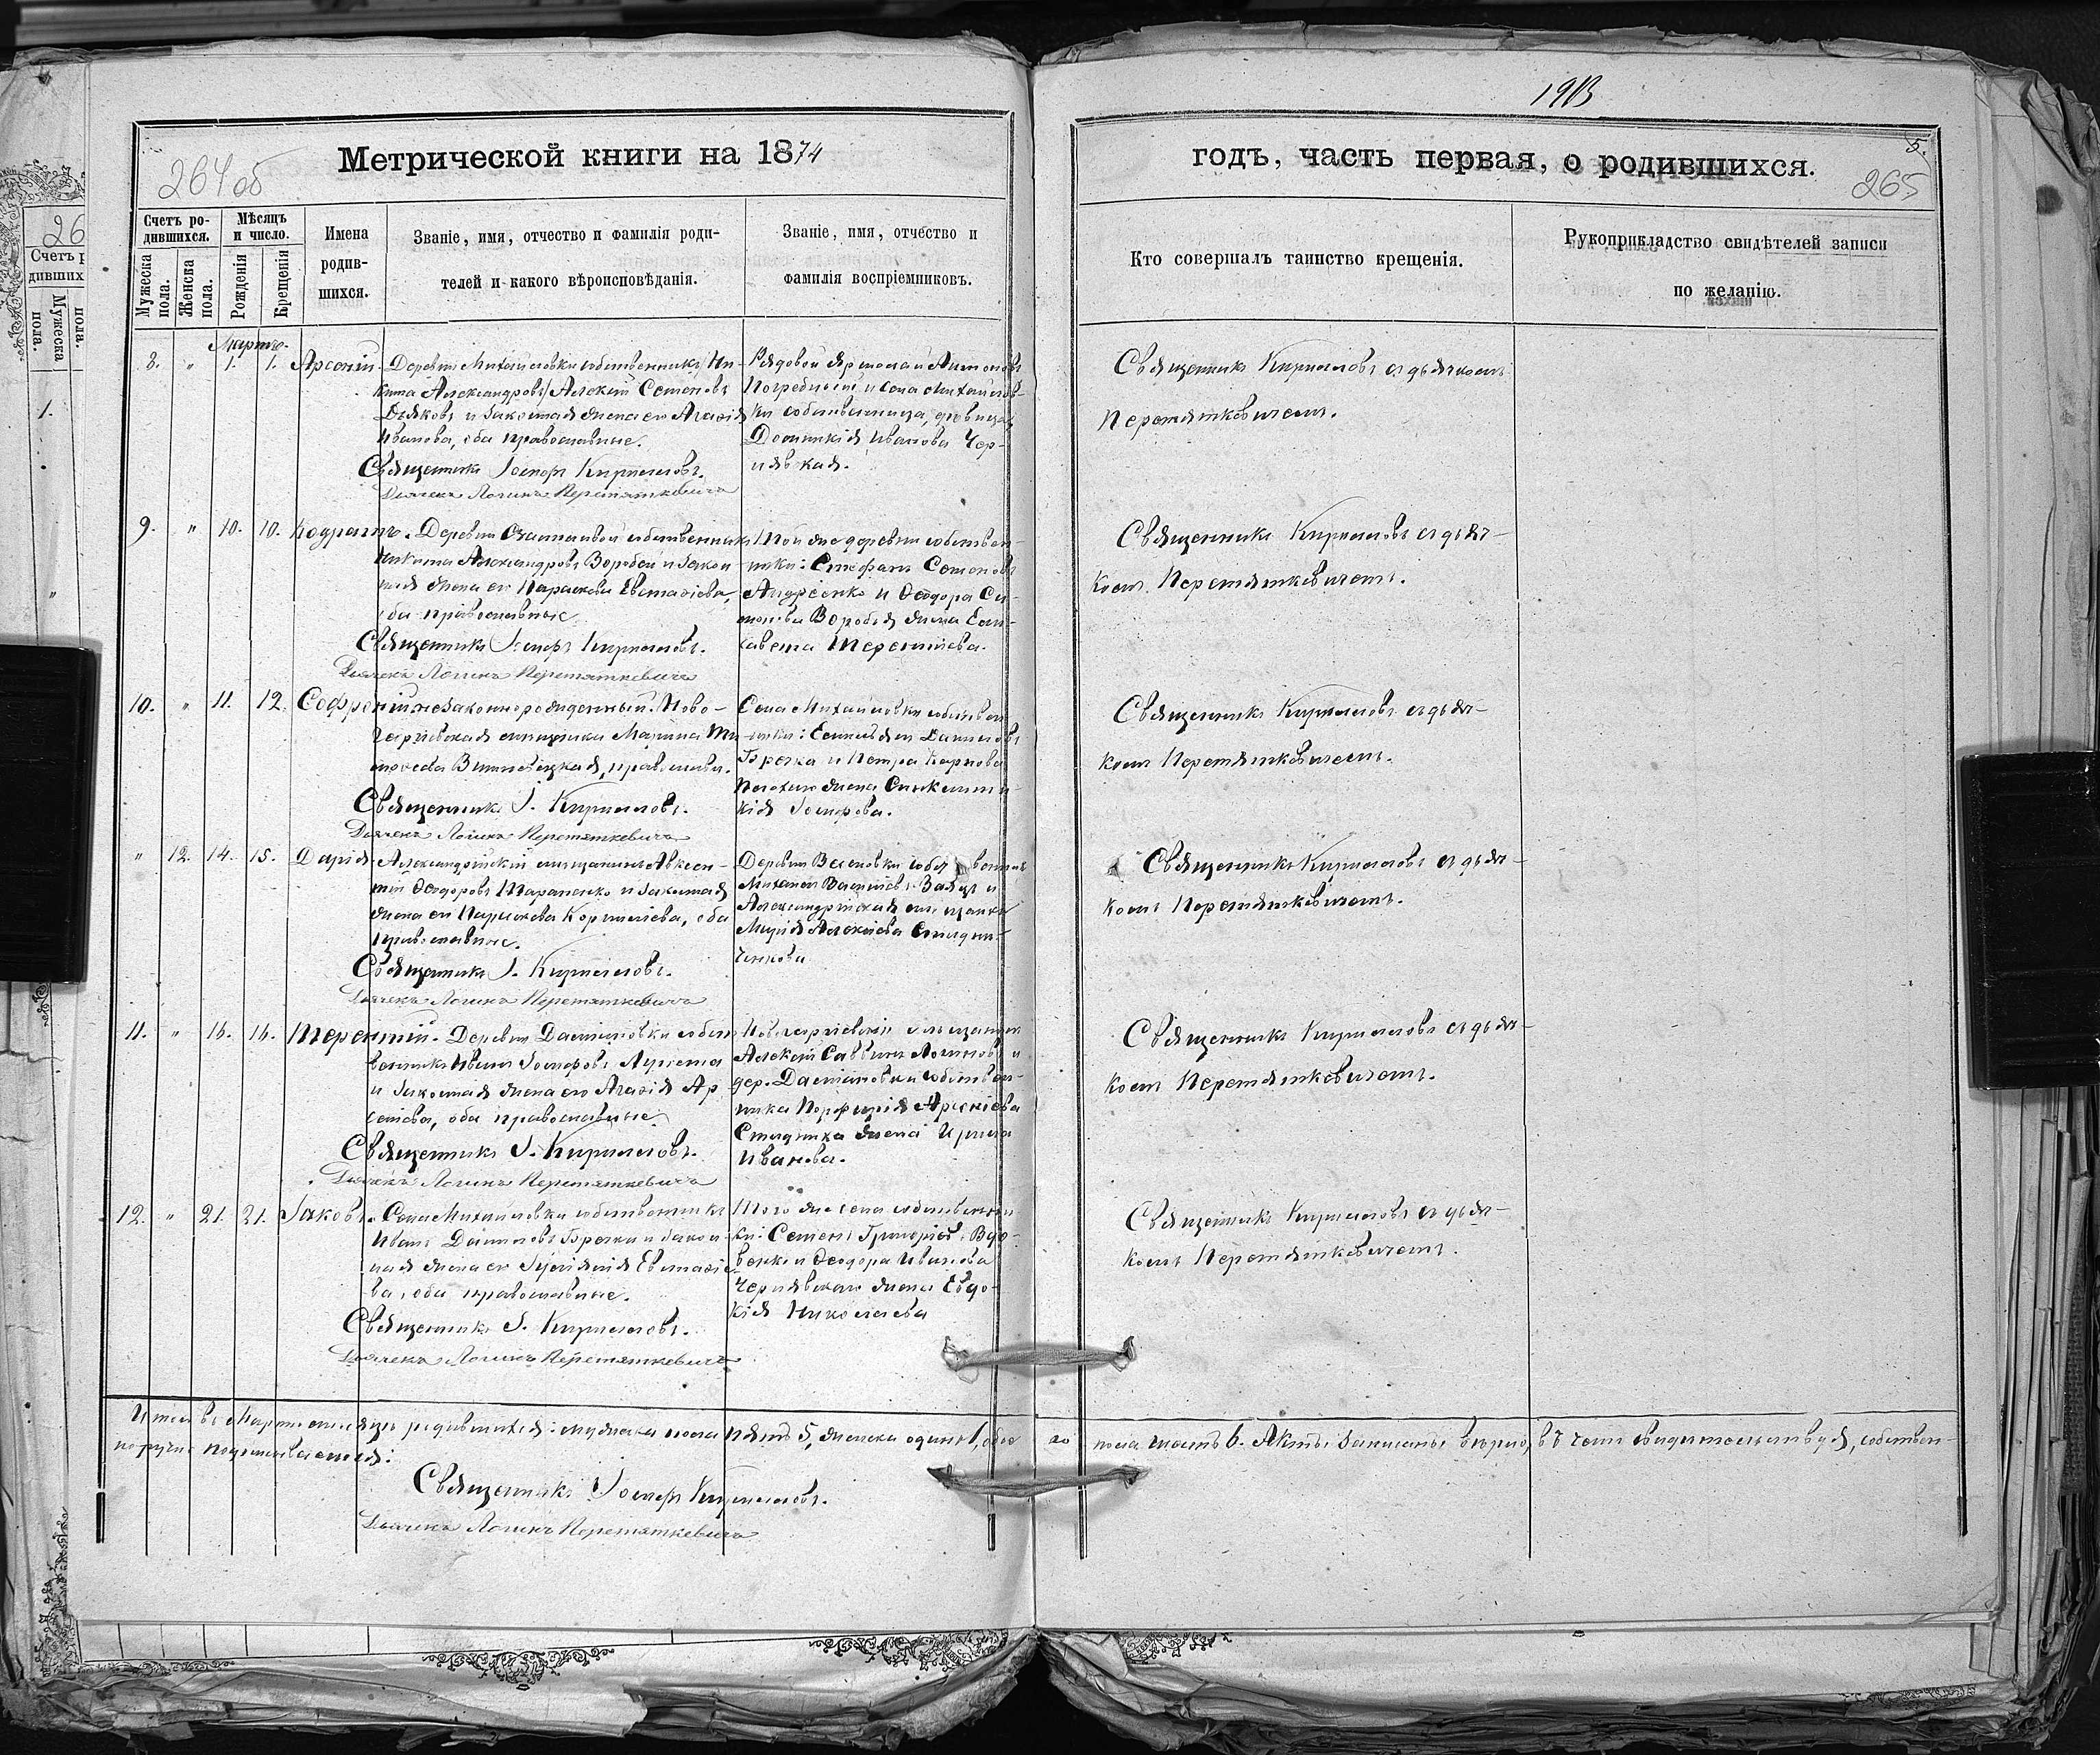 1913
Метрической книги на 1874
264 об
годъ, часть первая, о родившихся.
5.
265
Счетъ ро-
дившихся.
Мужеска пола.
Женска пола.
Мѣсяцъ
и число.
Рожденія
Крещенія
Имена
родив-
шихся.
Званіе, имя, отчество и фамилія роди-
телей и какого вѣроисповѣданія.
Званіе, имя, отчество и
фамилія воспріемниковъ.
Кто совершалъ таинство крещенія.
Рукоприкладство свидѣтелей записи
по желанію.
Мартъ.
8. " 1. 1. Арсеній.
Деревни Михайловки собственникъ Ни-
кита Александровъ / Алексій Семеновъ
Дьяковъ и законная жена его Агафія
Иванова, оба православные.
Священникъ Іосифъ Кириловъ.
Дьячекъ Логинъ Перетяткевичъ
Рядовой
Погребный и села Михайлов-
ки собственница, девица
Домникія Иванова Чер-
нявская.
Священникъ Кириловъ съ дьячкомъ
Перетяткевичемъ.
9. " 10. 10. Кодратъ.
Деревни Счастливой собственникъ
Никита Александровъ Воробей и закон
ная жена его Параскева Евстафіева,
оба православные.
Священникъ Іосифъ Кириловъ.
Дьячекъ Логинъ Перетяткевичъ
Той же деревни собствен-
ники: Стефанъ Семеновъ
Андріенко и Ѳеодора Си-
монова Воробья жена Ели-
савета Терентіева.
Священникъ Кириловъ съ дьяч-
комъ Перетяткевичемъ.
10. " 11. 12. Софроній
незаконнорожденный. Ново-
георгіевская мещанка Марина Ти-
моѳеева Вишневецкая, православн.
Священникъ І. Кириловъ.
Дьячекъ Логинъ Перетяткевичъ
Села Михайловки собствен
ники: Емельянъ Даниловъ
Бречка и Петра Карпова
жена Синклити-
кія Іосифова.
Священникъ Кириловъ съ дьяч-
комъ Перетяткевичемъ.
" 12. 14. 15. Дарія.
Александрійскій мещанинъ Авксен-
тій Ѳеодоровъ Тараненко и законная
жена его Параскева Корниліева, оба
православные.
Священникъ І. Кириловъ.
Дьячекъ Логинъ Перетяткевичъ
Деревни Веселовки собственникъ
Михаилъ Василіевъ Заяцъ и
Александрійская мещанка
Марія Алексіева
Священникъ Кириловъ съ дьяч-
комъ Перетяткевичемъ.
11. " 16. 16. Терентій.
Деревни собст
венникъ Иванъ Іосифовъ
и законная жена его Агафія Ар
сеніева, оба православные.
Священникъ І. Кириловъ.
Дьячекъ Логинъ Перетяткевичъ
Новогеоргіевскій мещанинъ
Алексій Саввинъ Логиновъ и
дер. собствен-
ника Порфирія Арсеніева
жена Ирина
Иванова.
Священникъ Кириловъ съ дьяч-
комъ Перетяткевичемъ.
12. " 21. 21. Іаковъ.
Села Михайловки собственникъ
Иванъ Даниловъ Бречка и закон-
ная жена его Евстафіе-
ва, оба православные.
Священникъ І. Кириловъ.
Дьячекъ Логинъ Перетяткевичъ
Того же села собственни
ки: Семенъ Григоріевъ Вдо-
венко и Ѳеодора Иванова
Чернявскаго жена Евдо-
кія Николаева
Священникъ Кириловъ съ дьяч-
комъ Перетяткевичемъ.
Итого въ Мартѣ месяцѣ родившихся: мужеска пола пять 5, женска одинъ 1, обо
его пола шесть 6. Актъ записаны вѣрно, въ чемъ свидетельствуя, собствен-
норучно подписываемся:
Священникъ Іосифъ Кириловъ.
Дьячекъ Логинъ Перетяткевичъ